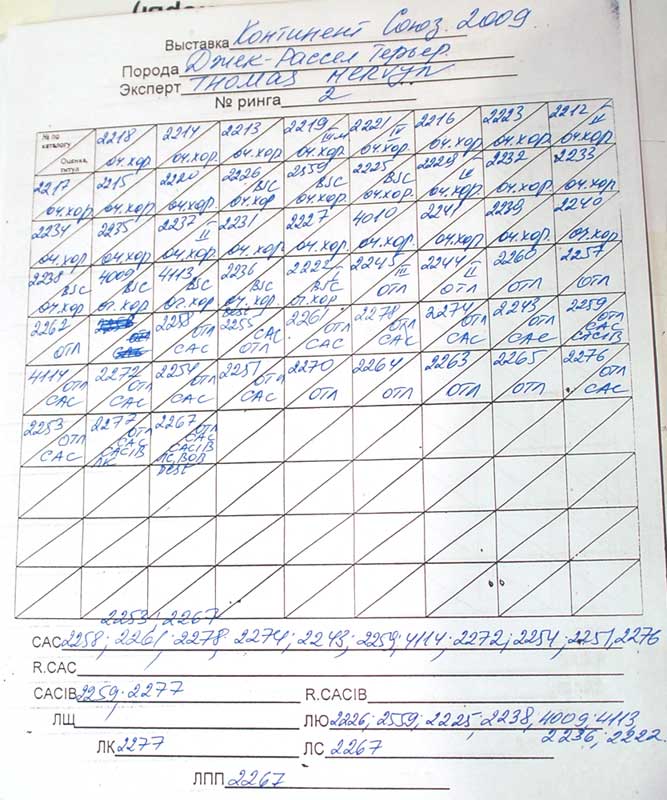 Выставка Континент Союз. 2009
Порода Джек-Рассел Терьер.
Эксперт THOMAS MERVYN
№ ринга 2
№ по каталогу Оценка, титул 2218 оч.хор 2214 оч.хор. 2213 оч.хор. 2219 III-м оч.хор. 2221 IV оч.хор. 2216 оч.хор. 2223 оч.хор. 2212 II оч.хор
2217 оч.хор 2215 оч.хор. 2220 оч.хор. 2226 BSC оч.хор. 2559 BSC оч.хор. 2225 BSC оч.хор. 2228 оч.хор. 2232 оч.хор. 2233 оч.хор.
2234 оч.хор 2235 оч.хор 2237 II оч.хор. 2231 оч.хор. 2227 оч.хор. 4010 оч.хор. 2241 оч.хор. 2239 оч.хор. 2240 оч.хор.
2238 BSC оч.хор 4009 BSC оч.хор. 4113 BSC оч.хор. 2236 BSC оч.хор. 2222 BSC оч.хор 2245 III ОТЛ 2244 II ОТЛ 2260 ОТЛ 2257 ОТЛ
2262 ОТЛ 2258 ОТЛ САС 2255 САС ОТЛ 2261 ОТЛ САС 2278 ОТЛ САС 2274 ОТЛ САС 2243 ОТЛ САС 2259 ОТЛ САС CACIB
4114 ОТЛ САС 2272 ОТЛ САС 2254 ОТЛ САС 2251 ОТЛ САС 2270 ОТЛ 2264 ОТЛ 2263 ОТЛ 2265 ОТЛ 2276 ОТЛ САС
2253 ОТЛ САС 2277 ОТЛ САС CACIB ЛК 2267 ОТЛ САС CACIB ЛС, BOB best
2253; 2267
САС 2258; 2261; 2278; 2274; 2243; 2259; 4114; 2272; 2254; 2251, 2276
R.CAC
CACIB 2259; 2277 R.CACIB
ЛЩ ЛЮ 2226; 2559; 2225; 2238, 4009; 4113
2236; 2222.
ЛК 2277 ЛС 2267
ЛПП 2267